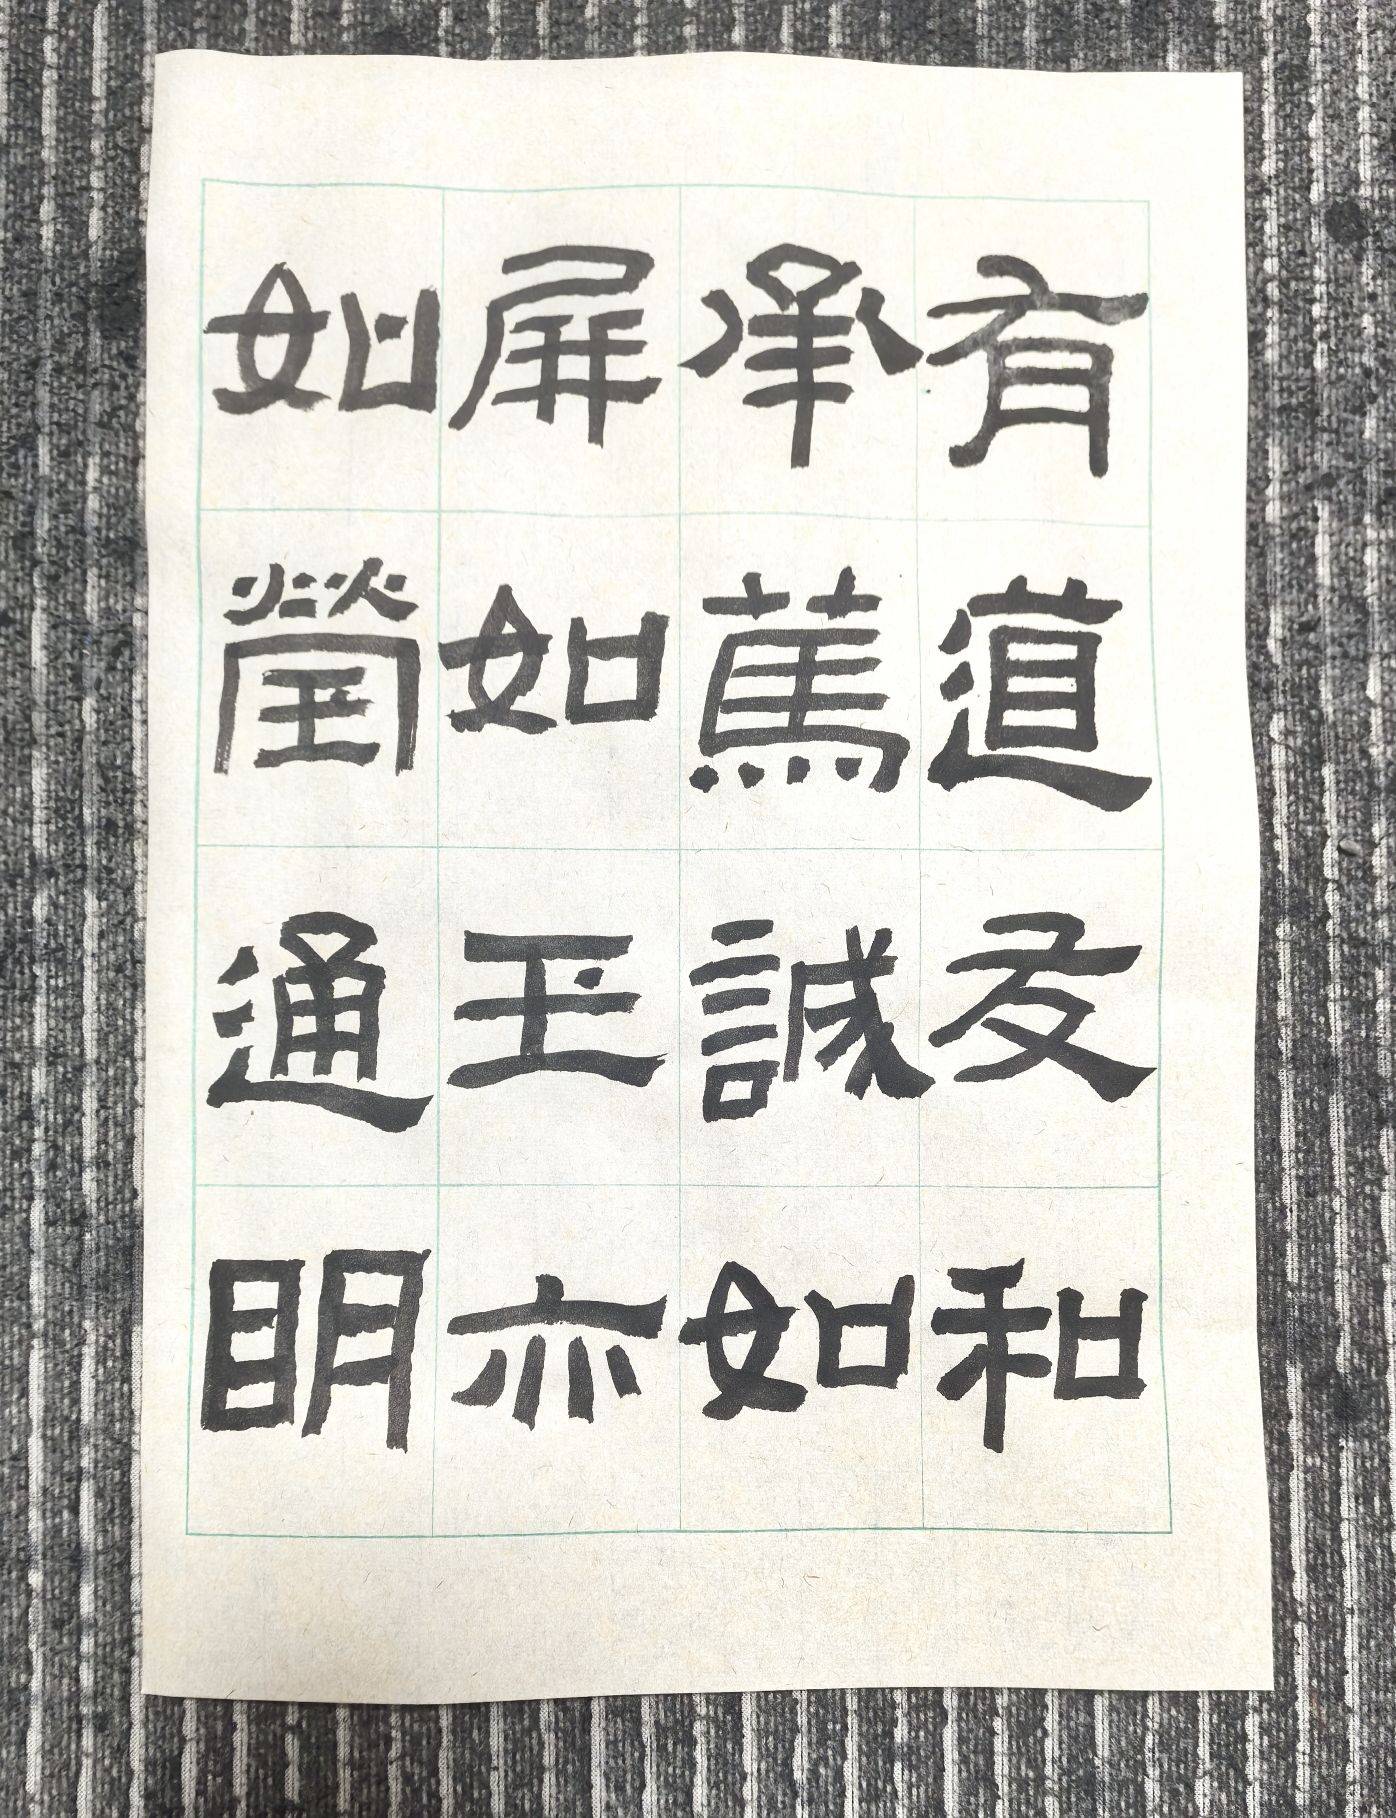 有道友和
承篤誠如
屏如玉亦
如瑩通明